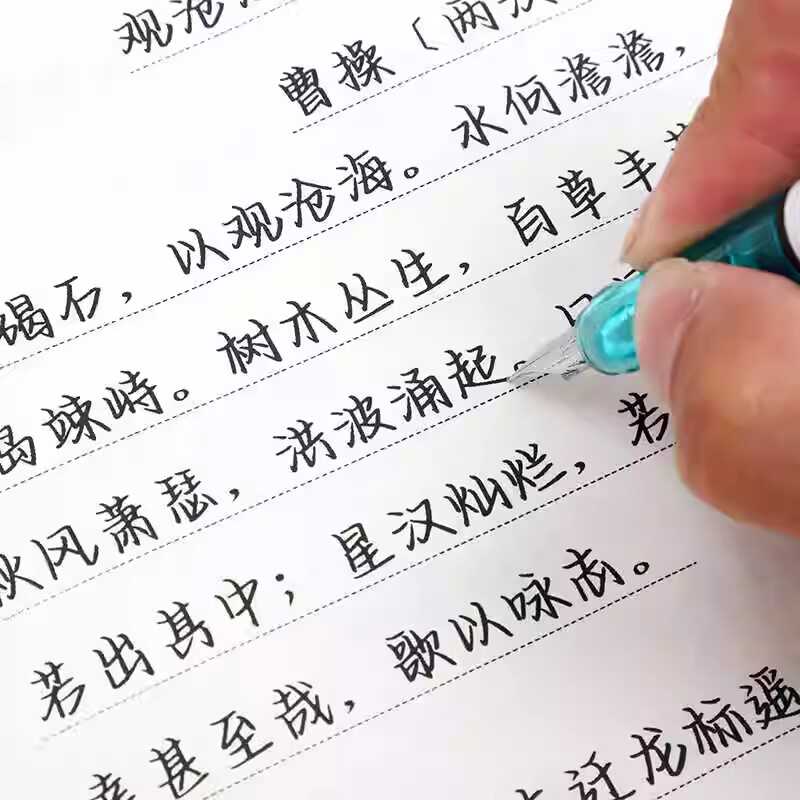 观沧
曹操〔两汉
碣石，以观沧海。水何澹澹，
岛竦峙。树木丛生，百草丰
秋风萧瑟，洪波涌起。日
若出其中；星汉灿烂，若
幸甚至哉，歌以咏志。
迁龙标遥